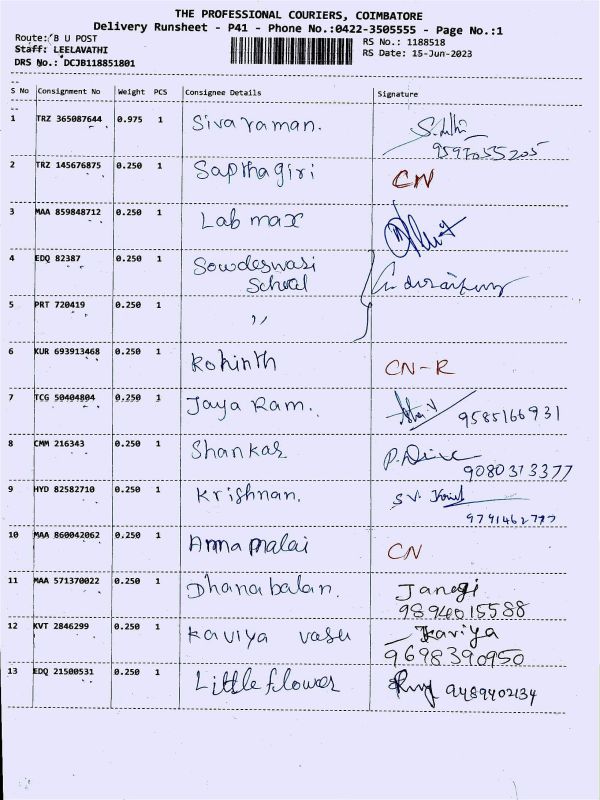 THE PROFESSIONAL COURIERS, COIMBATORE
Delivery Runsheet - P41 - Phone No.:0422-3505555 - Page No.:1
Route: B U POST
RS No.: 1188518
Staff: LEELAVATHI
RS Date: 15-Jun-2023
DRS No.: DCJB118851801
S No Consignment No Weight PCS Consignee Details Signature
1 TRZ 365087644 0.975 1 Sivaraman.
9597055205
2 TRZ 145676875 0.250 1 Sapthagiri CN
3 MAA 859848712 0.250 1 Lab max
4 EDQ 82387 0.250 1 Sowdeswari
School
5 PRT 720419 0.250 1 ,,
6 KUR 693913468 0.250 1 Rohinth CN-R
7 TCG 50404804 0.250 1 Jaya Ram. 9585166931
8 CMM 216343 0.250 1 Shankar
9080313377
9 HYD 82582710 0.250 1 Krishnan. SV.
9791462777
10 MAA 860042062 0.250 1 Annamalai CN
11 MAA 571370022 0.250 1 Dhanabalan. Janagi
9894015588
12 KVT 2846299 0.250 1 Kaviya vasu Kaviya
9698390950
13 EDQ 21500531 0.250 1 Little flower 9489402134